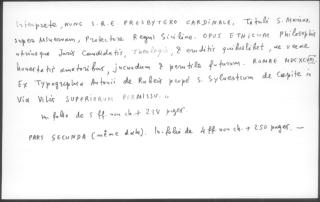 Interprete, nunc S.R.E PRESBYTERO CARDINALE, Tituli S. Mariae
super Minervam, Protectore Regni Siciliae. OPUS ETHICUM Philosophis
utriusque Juris Candidatis, Theologis, & eruditis quibuslibet, ac verae
honestatis amatoribus, jucundum & perutile futurum. ROMAE MDCXC
Ex Typographia Antonii de Rubeis propè S. Sylvestrum de Capite in
Via Vitis SUPERIORUM PERMISSU.
In folio de 5 ff non ch + 238 pages.
PARS SECUNDA (même date). In-folio de 4 ff non ch + 250 pages. —